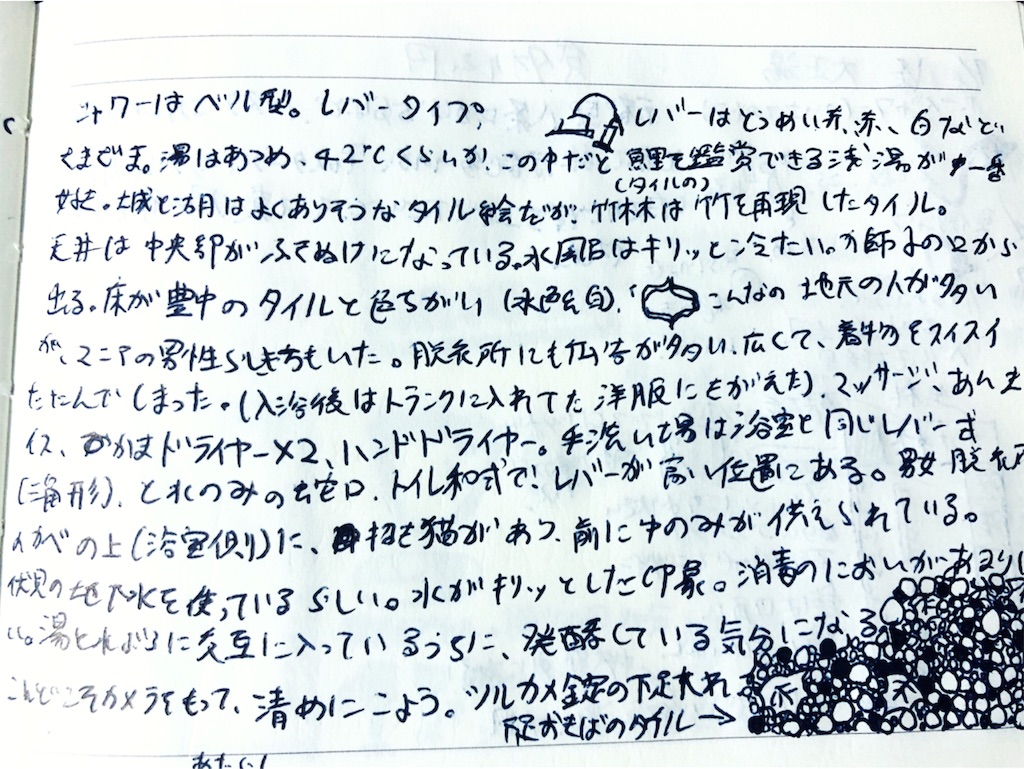 シャワーはベル型。レバータイプ。 レバーはとうめい赤、赤、白など
さまざま。湯はあつめ、42℃くらいか。この中だと鯉を鑑賞できる浅湯が一番
(タイルの)
好き。城と湖はよくありそうなタイル絵だが、竹林は竹を再現したタイル。
天井は中央部がふきぬけになっている。水風呂はキリッと冷たい。が師子の口から
出る。床が豊中のタイルと色ちがい(水色と白)。 こんなの 地元の人が多い
が、マニアの男性らしき方もいた。脱衣所にも広告が多い、広くて、着物をスイスイ
たたんでしまった。(入浴後はトランクに入れてた洋服にきがえた)。マッサージ、あんま
イス、おかまドライヤー×2、ハンドドライヤー。手洗い場は浴室と同じレバー式
(三角形)、と水のみの蛇口。トイレ和式で!レバーが高い位置にある。男女脱衣所
のかべの上(浴室側)に、招き猫があり、前に中のみが供えられている。
伏見の地下水を使っているらしい。水がキリッとした印象。消毒のにおいがあまりし
い。湯と水ぶろに交互に入っているうちに、発酵している気分になる
こんどこそカメラをもって、清めにこよう。ツルカメ錠の下足入れ
下足おきばのタイル→